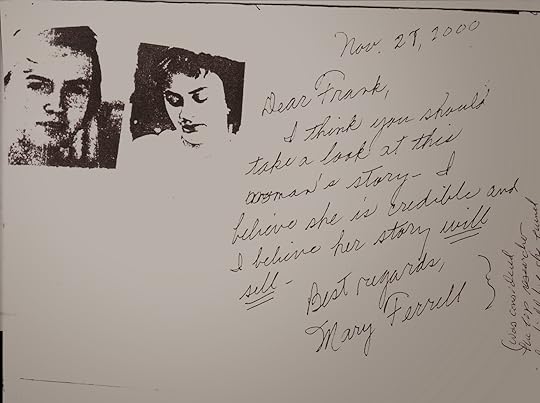 Nov. 27, 2000
Dear Frank,
I think you should
take a look at this
woman's story - I
believe she is credible and
I believe her story will
sell -
Best regards,
Mary Ferrell
(was considered
the top researcher